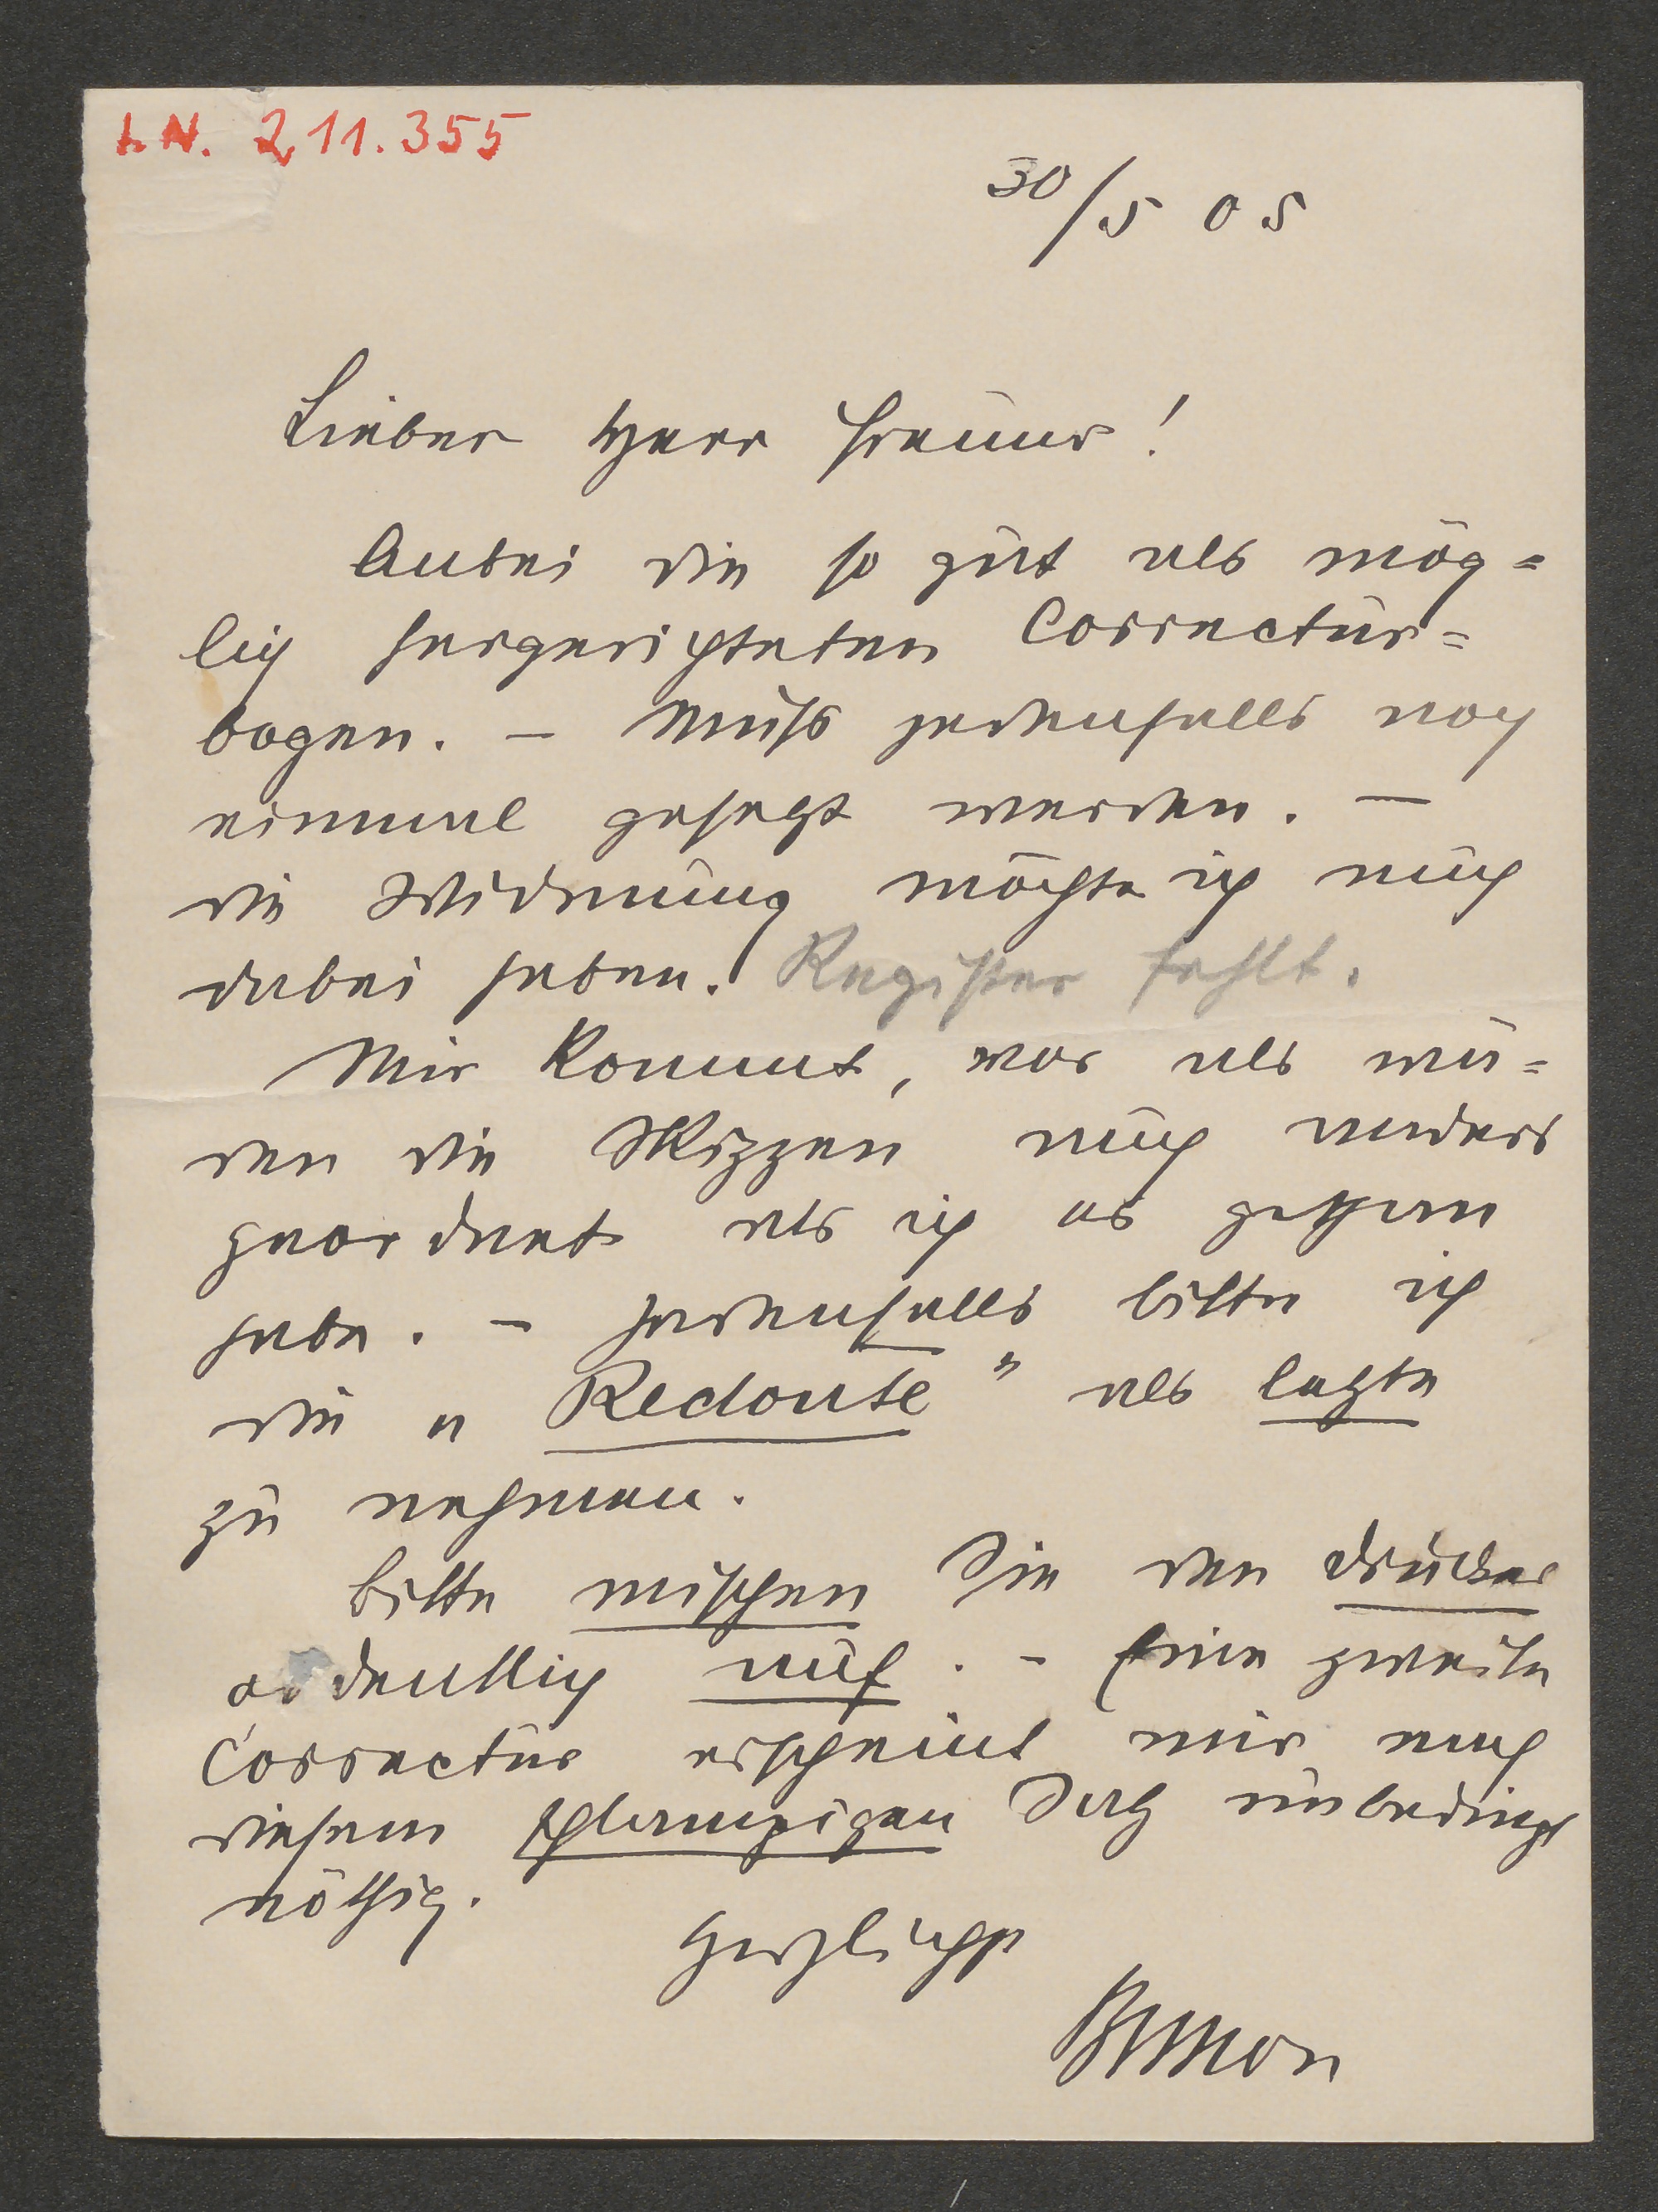 I. N. 211.355
30/5 05
Lieber Herr Freund!
Anbei die so gut als mög=
lich hergerichteten Correctur=
bogen. – Muß jedenfalls noch
einmal gesetzt werden. –
die Widmung möchte ich auch
dabei haben. Register fehlt.
Mir kommt, vor als wü=
rden die Skizzen auch anders
geordnet als ich es gethan
habe. – jedenfalls bitte ich
die „Redoute" als letzte
zu nehmen.
bitte mischen Sie den drucker
ordentlich auf. – Eine zweite
Correctur erscheint mir nach
diesem schlampigen Satz unbedingt
nöthig.
Herzlichst